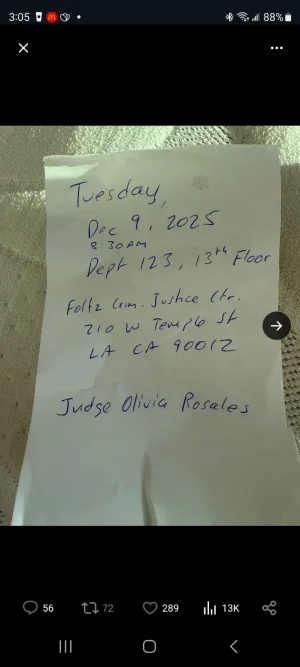 3:05
88%
Tuesday,
Dec 9, 2025
8:30AM
Dept 123, 13th Floor
Foltz Crim. Justice Ctr.
210 W Temple St
LA CA 90012
Judge Olivia Rosales
56
72
289
13K